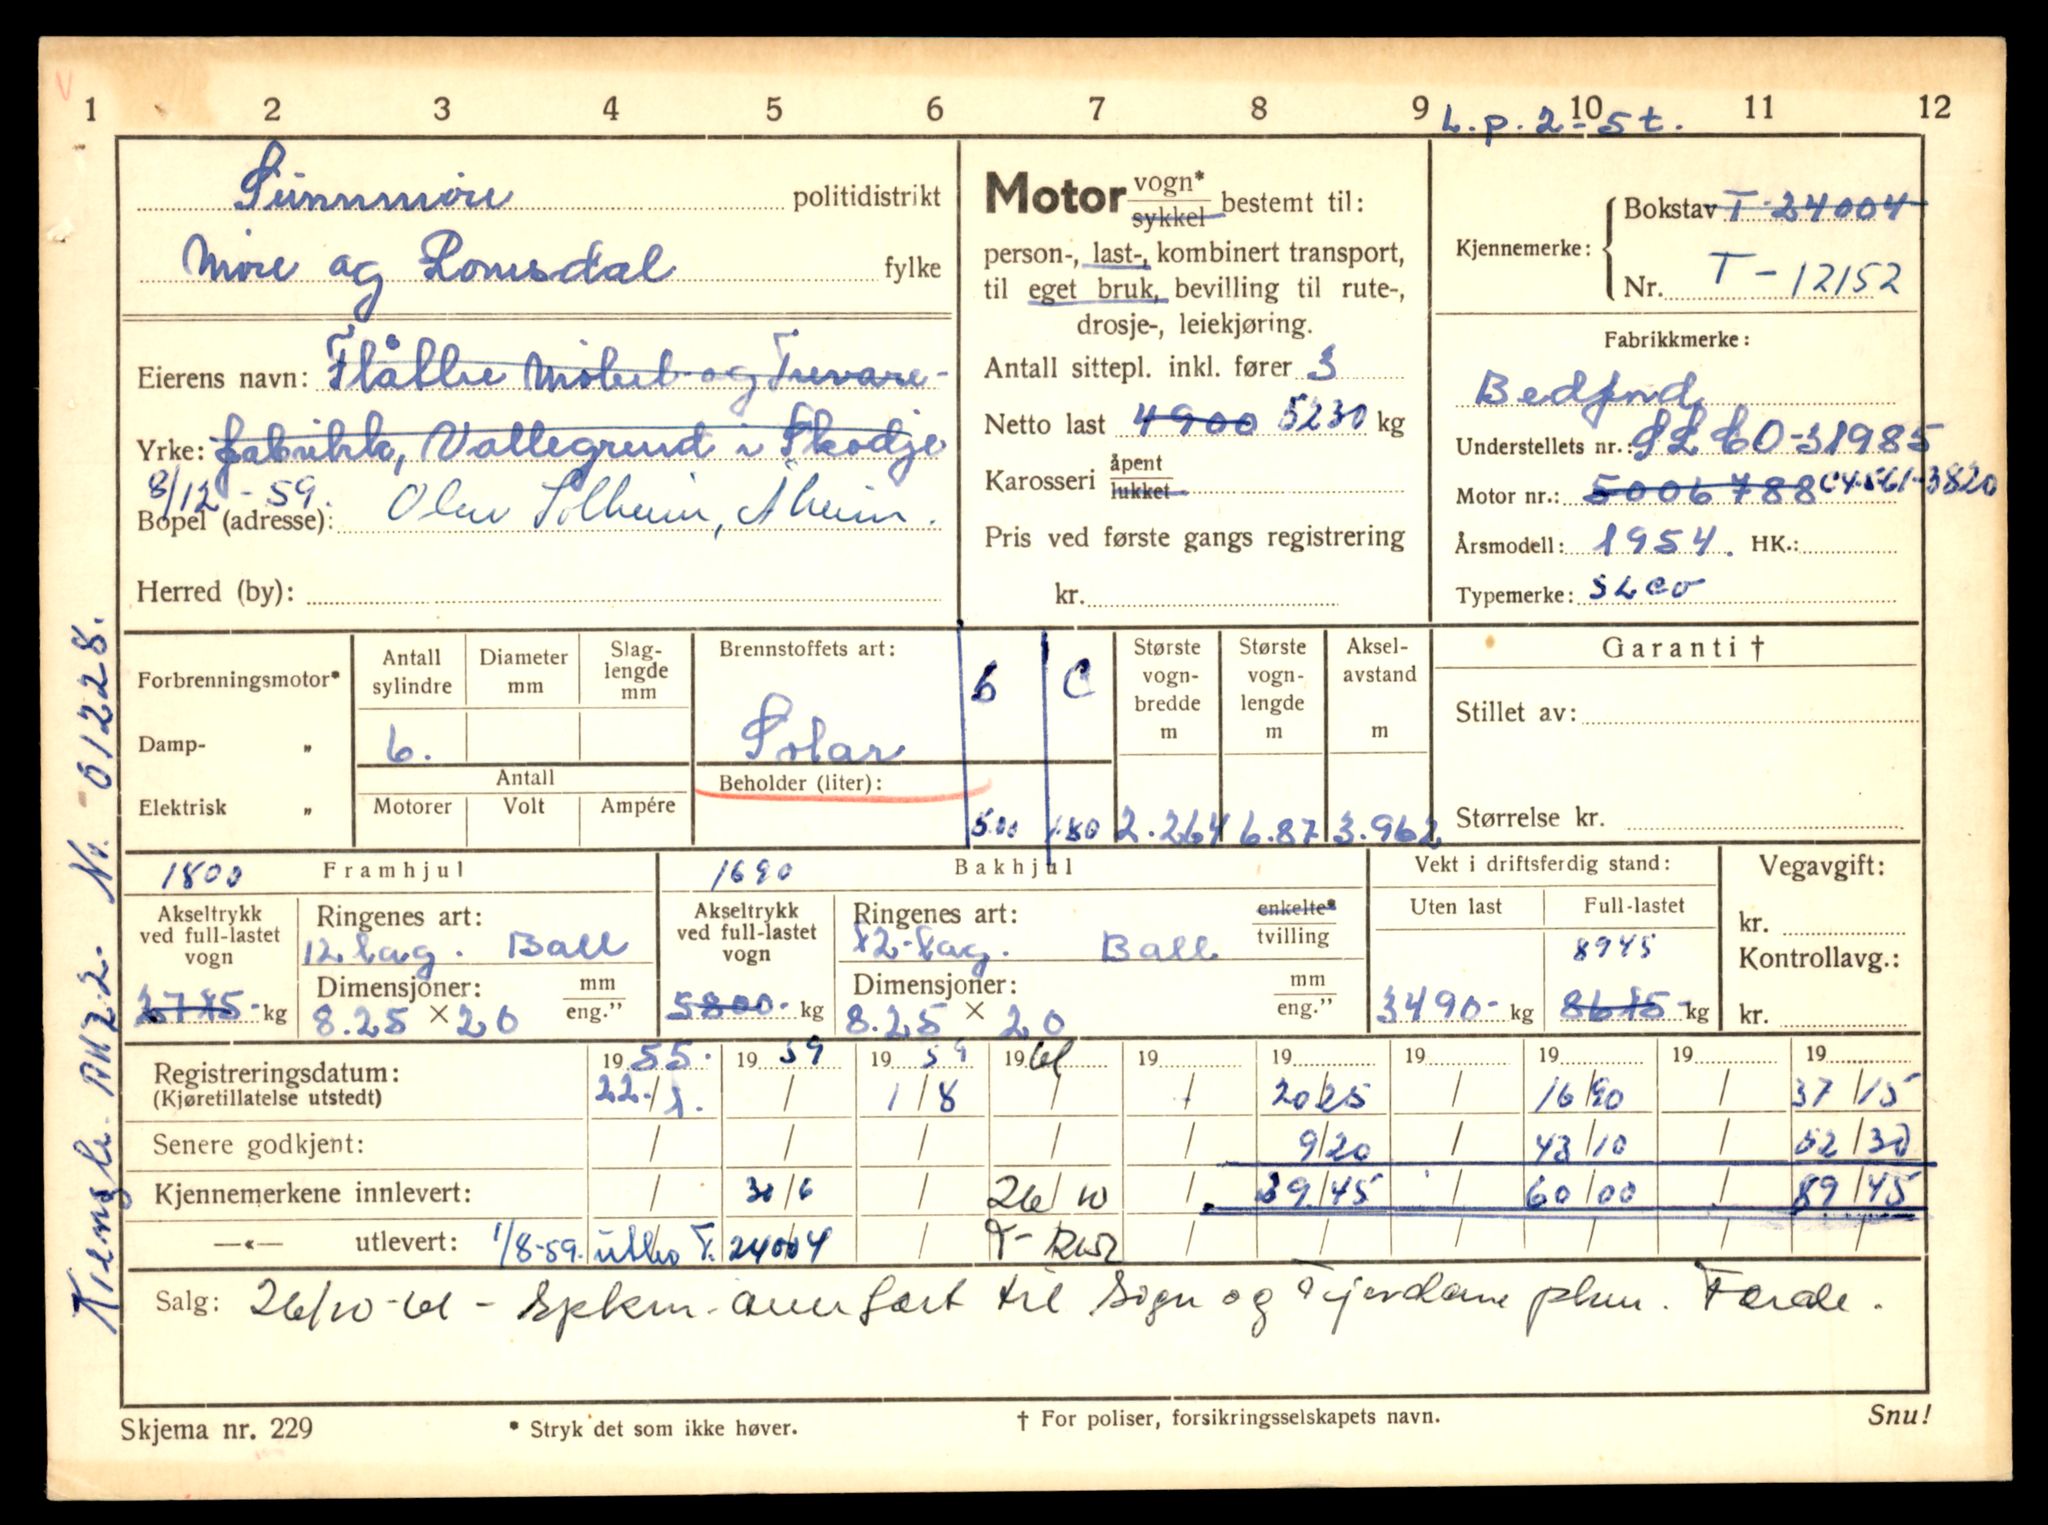 1 2 3 4 5 6 7 8 9 10 11 12
L.p. 2-5t.
Sunnmøre politidistrikt
Møre og Romsdal fylke
Eierens navn: Flåtre Møbel- og Trevare-
Yrke: fabrikk, Vallegrend i Skodje
8/12-59.
Bopel (adresse): Olav Solheim, Åheim.
Herred (by):
Motor vogn* / sykkel bestemt til:
person-, last-, kombinert transport,
til eget bruk, bevilling til rute-,
drosje-, leiekjøring.
Antall sittepl. inkl. fører 3
Netto last 4900 5230 kg
Karosseri åpent / lukket
Pris ved første gangs registrering
kr.
Kjennemerke: Bokstav T-24004
Nr. T-12152
Fabrikkmerke:
Bedford
Understellets nr.: SLCO-31985
Motor nr.: 5006788 C4.561-3820
Årsmodell: 1954. HK.:
Typemerke: SLCO
Forbrenningsmotor*
Damp- „
Elektrisk „
Antall sylindre Diameter mm Slag-lengde mm
6.
Antall
Motorer Volt Ampére
Brennstoffets art:
Solar
Beholder (liter):
b C
500 180
Største vogn-bredde m Største vogn-lengde m Aksel-avstand m
2.264 6.87 3.962
Garanti †
Stillet av:
Størrelse kr.
1800 Framhjul
Akseltrykk ved full-lastet vogn
2775- kg
Ringenes art:
12 lag. Ball
Dimensjoner: mm / eng."
8.25 × 20
1690 Bakhjul
Akseltrykk ved full-lastet vogn
5800- kg
Ringenes art: enkelte* / tvilling
12-lag. Ball
Dimensjoner: mm / eng."
8.25 × 20
Vekt i driftsferdig stand:
Uten last Full-lastet
8945
3490- kg 8615- kg
Vegavgift:
kr.
Kontrollavg.:
kr.
19 55. 19 59 19 59 19 61 19 19 19 19 19 19
Registreringsdatum: 22./1. / 1/8 / 20/25 / 16/90 / 37/15
(Kjøretillatelse utstedt)
Senere godkjent: 9/20 43/10 52/30
Kjennemerkene innlevert: 30/6 26/10 39/45 60/00 89/45
—«— utlevert: 1/8-59. utlev T. 24004 T-
Salg: 26/10-61 - Spkm. overført til Sogn og Fjordane pkm. Førde.
Skjema nr. 229
* Stryk det som ikke høver.
† For poliser, forsikringsselskapets navn.
Snu!
Kienzle. AK 22. Nr. 01228.